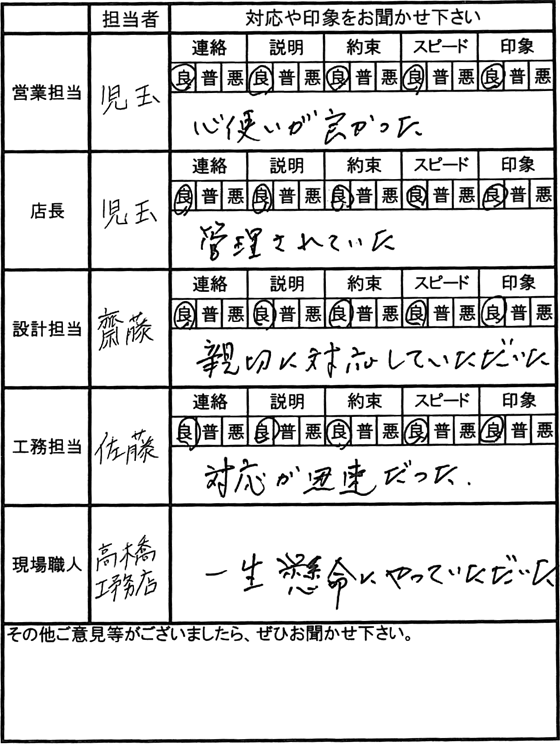 担当者 対応や印象をお聞かせ下さい
営業担当 児玉 連絡 説明 約束 スピード 印象
良 普 悪 良 普 悪 良 普 悪 良 普 悪 良 普 悪
心使いが良かった
店長 児玉 連絡 説明 約束 スピード 印象
良 普 悪 良 普 悪 良 普 悪 良 普 悪 良 普 悪
管理されていた
設計担当 齋藤 連絡 説明 約束 スピード 印象
良 普 悪 良 普 悪 良 普 悪 良 普 悪 良 普 悪
親切に対応していただいた
工務担当 佐藤 連絡 説明 約束 スピード 印象
良 普 悪 良 普 悪 良 普 悪 良 普 悪 良 普 悪
対応が迅速だった.
現場職人 高橋
工務店
一生懸命にやっていただいた
その他ご意見等がございましたら、ぜひお聞かせ下さい。